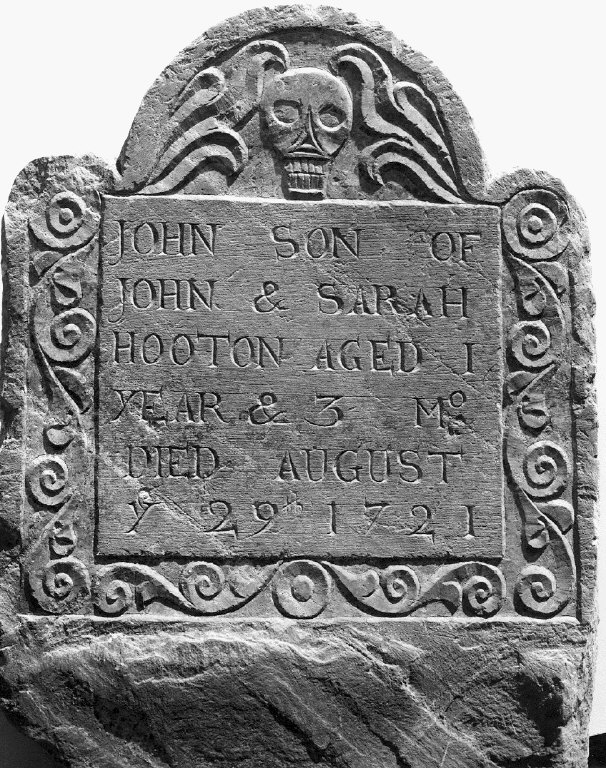 JOHN SON OF
JOHN & SARAH
HOOTON AGED 1
YEAR & 3 Mo
DIED AUGUST
Y 29th 1721